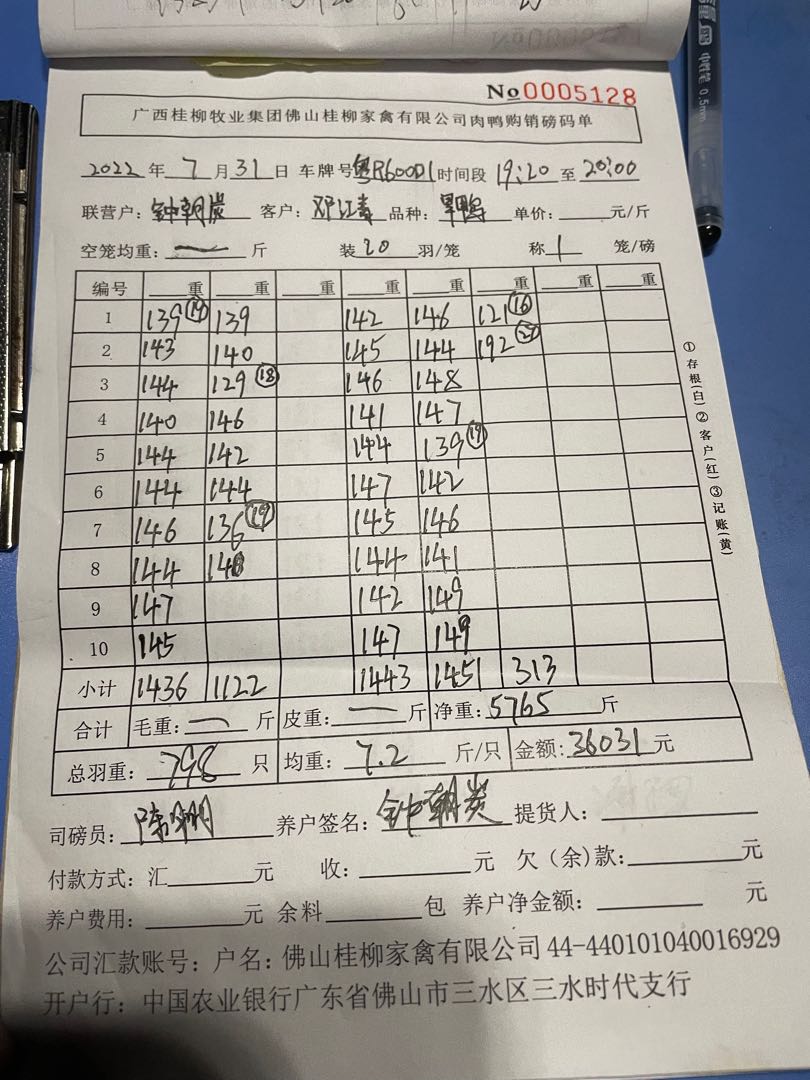 No 0005128
广西桂柳牧业集团佛山桂柳家禽有限公司肉鸭购销磅码单
2022年7月31日 车牌号粤R600D1时间段19:20至20:00
联营户:钟朝炭 客户:邓江青 品种:旱鸭 单价:元/斤
空笼均重:一斤 装20羽/笼 称1笼/磅
编号 重 重 重 重 重 重 重 重
1 139(19) 139 142 146 121(16)
2 143 140 145 144 192(27)
3 144 129(18) 146 148
4 140 146 141 147
5 144 142 144 139(19)
6 144 144 147 142
7 146 136(19) 145 146
8 144 144 141
9 147 142 149
10 145 147 149
小计 1436 1122 1443 1451 313
合计 毛重:一斤 皮重:一斤 净重:5765斤
总羽重:798只 均重:7.2斤/只 金额:36031元
司磅员: 养户签名:钟朝炭 提货人:
付款方式:汇元 收:元 欠(余)款:元
养户费用:元 余料包 养户净金额:元
公司汇款账号:户名:佛山桂柳家禽有限公司44-440101040016929
开户行:中国农业银行广东省佛山市三水区三水时代支行
①存根(白)②客户(红)③记账(黄)
中性笔 0.5mm